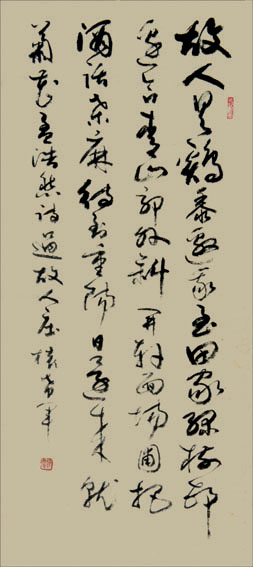 故人具鷄黍邀我至田家绿树邨
边合青山郭外斜开轩面场圃把
酒话桑麻待到重阳日还来就
菊花孟浩然诗过故人庄